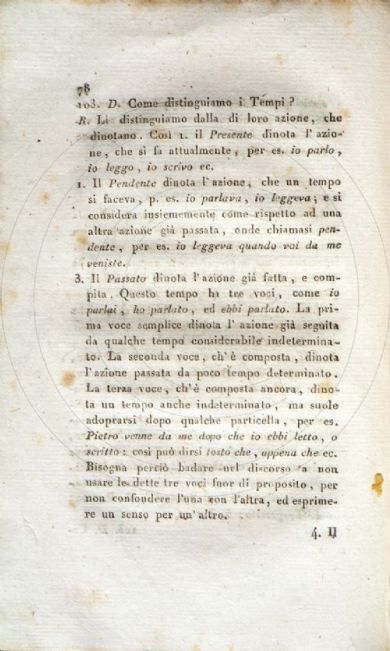 78
103. D. Come distinguiamo i Tempi?
R. Li distinguiamo dalla di loro azione, che
dinotano. Così 1. il Presente dinota l'azio-
ne, che si fa attualmente, per es. io parlo,
io leggo, io scrivo ec.
1. Il Pendente dinota l'azione, che un tempo
si faceva, p. es. io parlava, io leggeva; e si
considera insiememente come rispetto ad una
altra azione già passata, onde chiamasi pen-
dente, per es. io leggeva quando voi da me
veniste.
3. Il Passato dinota l'azione già fatta, e com-
pita. Questo tempo ha tre voci, come io
parlai, ho parlato, ed ebbi parlato. La pri-
ma voce semplice dinota l'azione già seguita
da qualche tempo considerabile indetermina-
to. La seconda voce, ch'è composta, dinota
l'azione passata da poco tempo determinato.
La terza voce, ch'è composta ancora, dino-
ta un tempo anche indeterminato, ma suole
adoprarsi dopo qualche particella, per es.
Pietro venne da me dopo che io ebbi letto, o
scritto: così può dirsi tosto che, appena che ec.
Bisogna perciò badare nel discorso a non
usare le dette tre voci fuor di proposito, per
non confondere l'una con l'altra, ed esprime-
re un senso per un'altro.
4. Il